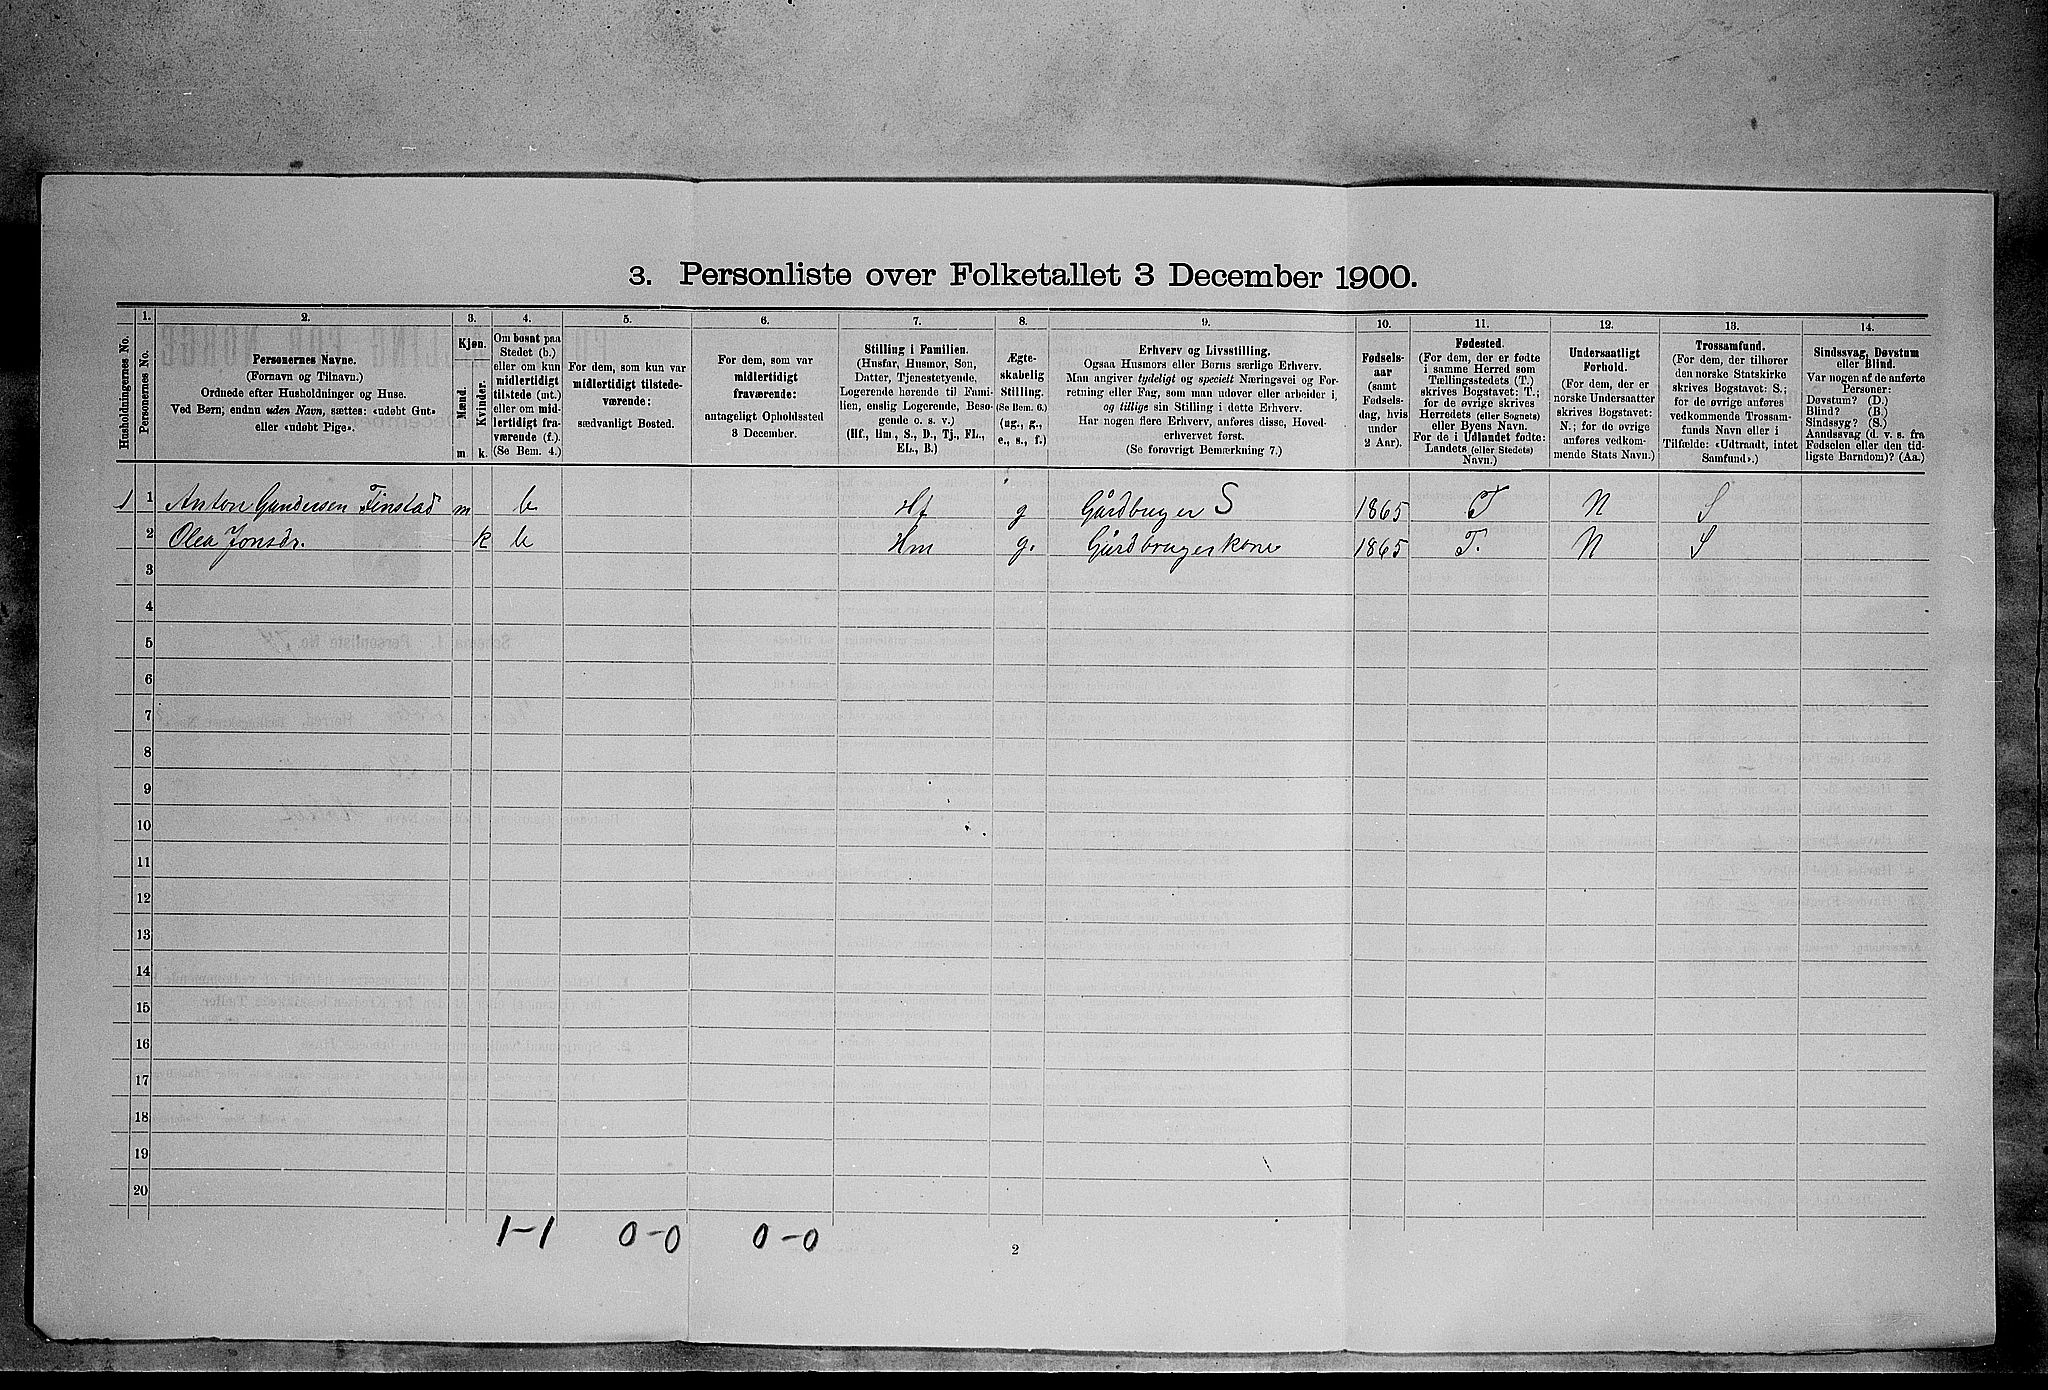 3. Personliste over Folketallet 3 December 1900.
Husholdningernes No.
1.
Personernes No.
2.
Personernes Navne.
(Fornavn og Tilnavn.)
Ordnede efter Husholdninger og Huse.
Ved Børn; endnu uden Navn, sættes: «udøbt Gut»
eller «udøbt Pige».
3.
Kjøn.
Mænd.
Kvinder.
m.
k.
4.
Om bosat paa
Stedet (b.)
eller om kun
midlertidigt
tilstede (mt.)
eller om mid-
lertidigt fra-
værende (f.)
(Se Bem. 4.)
5.
For dem, som kun var
midlertidigt tilstede-
værende:
sædvanligt Bosted.
6.
For dem, som var
midlertidigt
fraværende:
antageligt Opholdssted
3 December.
7.
Stilling i Familien.
(Husfar, Husmor, Søn,
Datter, Tjenestetyende,
Logerende hørende til Fami-
lien, enslig Logerende, Besø-
gende o. s. v.)
(Hf., Hm., S., D., Tj., FL.,
EL., B.)
8.
Ægte-
skabelig
Stilling.
(Se Bem. 6.)
(ug., g.,
e., s., f.)
9.
Erhverv og Livsstilling.
Ogsaa Husmors eller Børns særlige Erhverv.
Man angiver tydeligt og specielt Næringsvei og For-
retning eller Fag, som man udøver eller arbeider i,
og tillige sin Stilling i dette Erhverv.
Har nogen flere Erhverv, anføres disse, Hoved-
erhvervet først.
(Se forøvrigt Bemærkning 7.)
10.
Fødsels-
aar
(samt
Fødsels-
dag, hvis
under
2 Aar).
11.
Fødested.
(For dem, der er fødte
i samme Herred som
Tællingsstedets (T.)
skrives Bogstavet: T.;
for de øvrige skrives
Herredets (eller Sognets)
eller Byens Navn.
For de i Udlandet fødte:
Landets (eller Stedets)
Navn.)
12.
Undersaatligt
Forhold.
(For dem, der er
norske Undersaatter
skrives Bogstavet:
N.; for de øvrige
anføres vedkom-
mende Stats Navn.)
13.
Trossamfund.
(For dem, der tilhører
den norske Statskirke
skrives Bogstavet: S.;
for de øvrige anføres
vedkommende Trossam-
funds Navn eller i
Tilfælde: «Udtraadt, intet
Samfund».)
14.
Sindssvag, Døvstum
eller Blind.
Var nogen af de anførte
Personer:
Døvstum? (D.)
Blind? (B.)
Sindssyg? (S.)
Aandssvag (d. v. s. fra
Fødselen eller den tid-
ligste Barndom)? (Aa.)
1 1 Anton Gundersen Finstad m b Hf g Gårdbruger S 1865 T N S
2 Olea Jonsdr. k b Hm g. Gårdbrugerkone 1865 T. N S
3
4
5
6
7
8
9
10
11
12
13
14
15
16
17
18
19
20
1-1 0-0 0-0
2